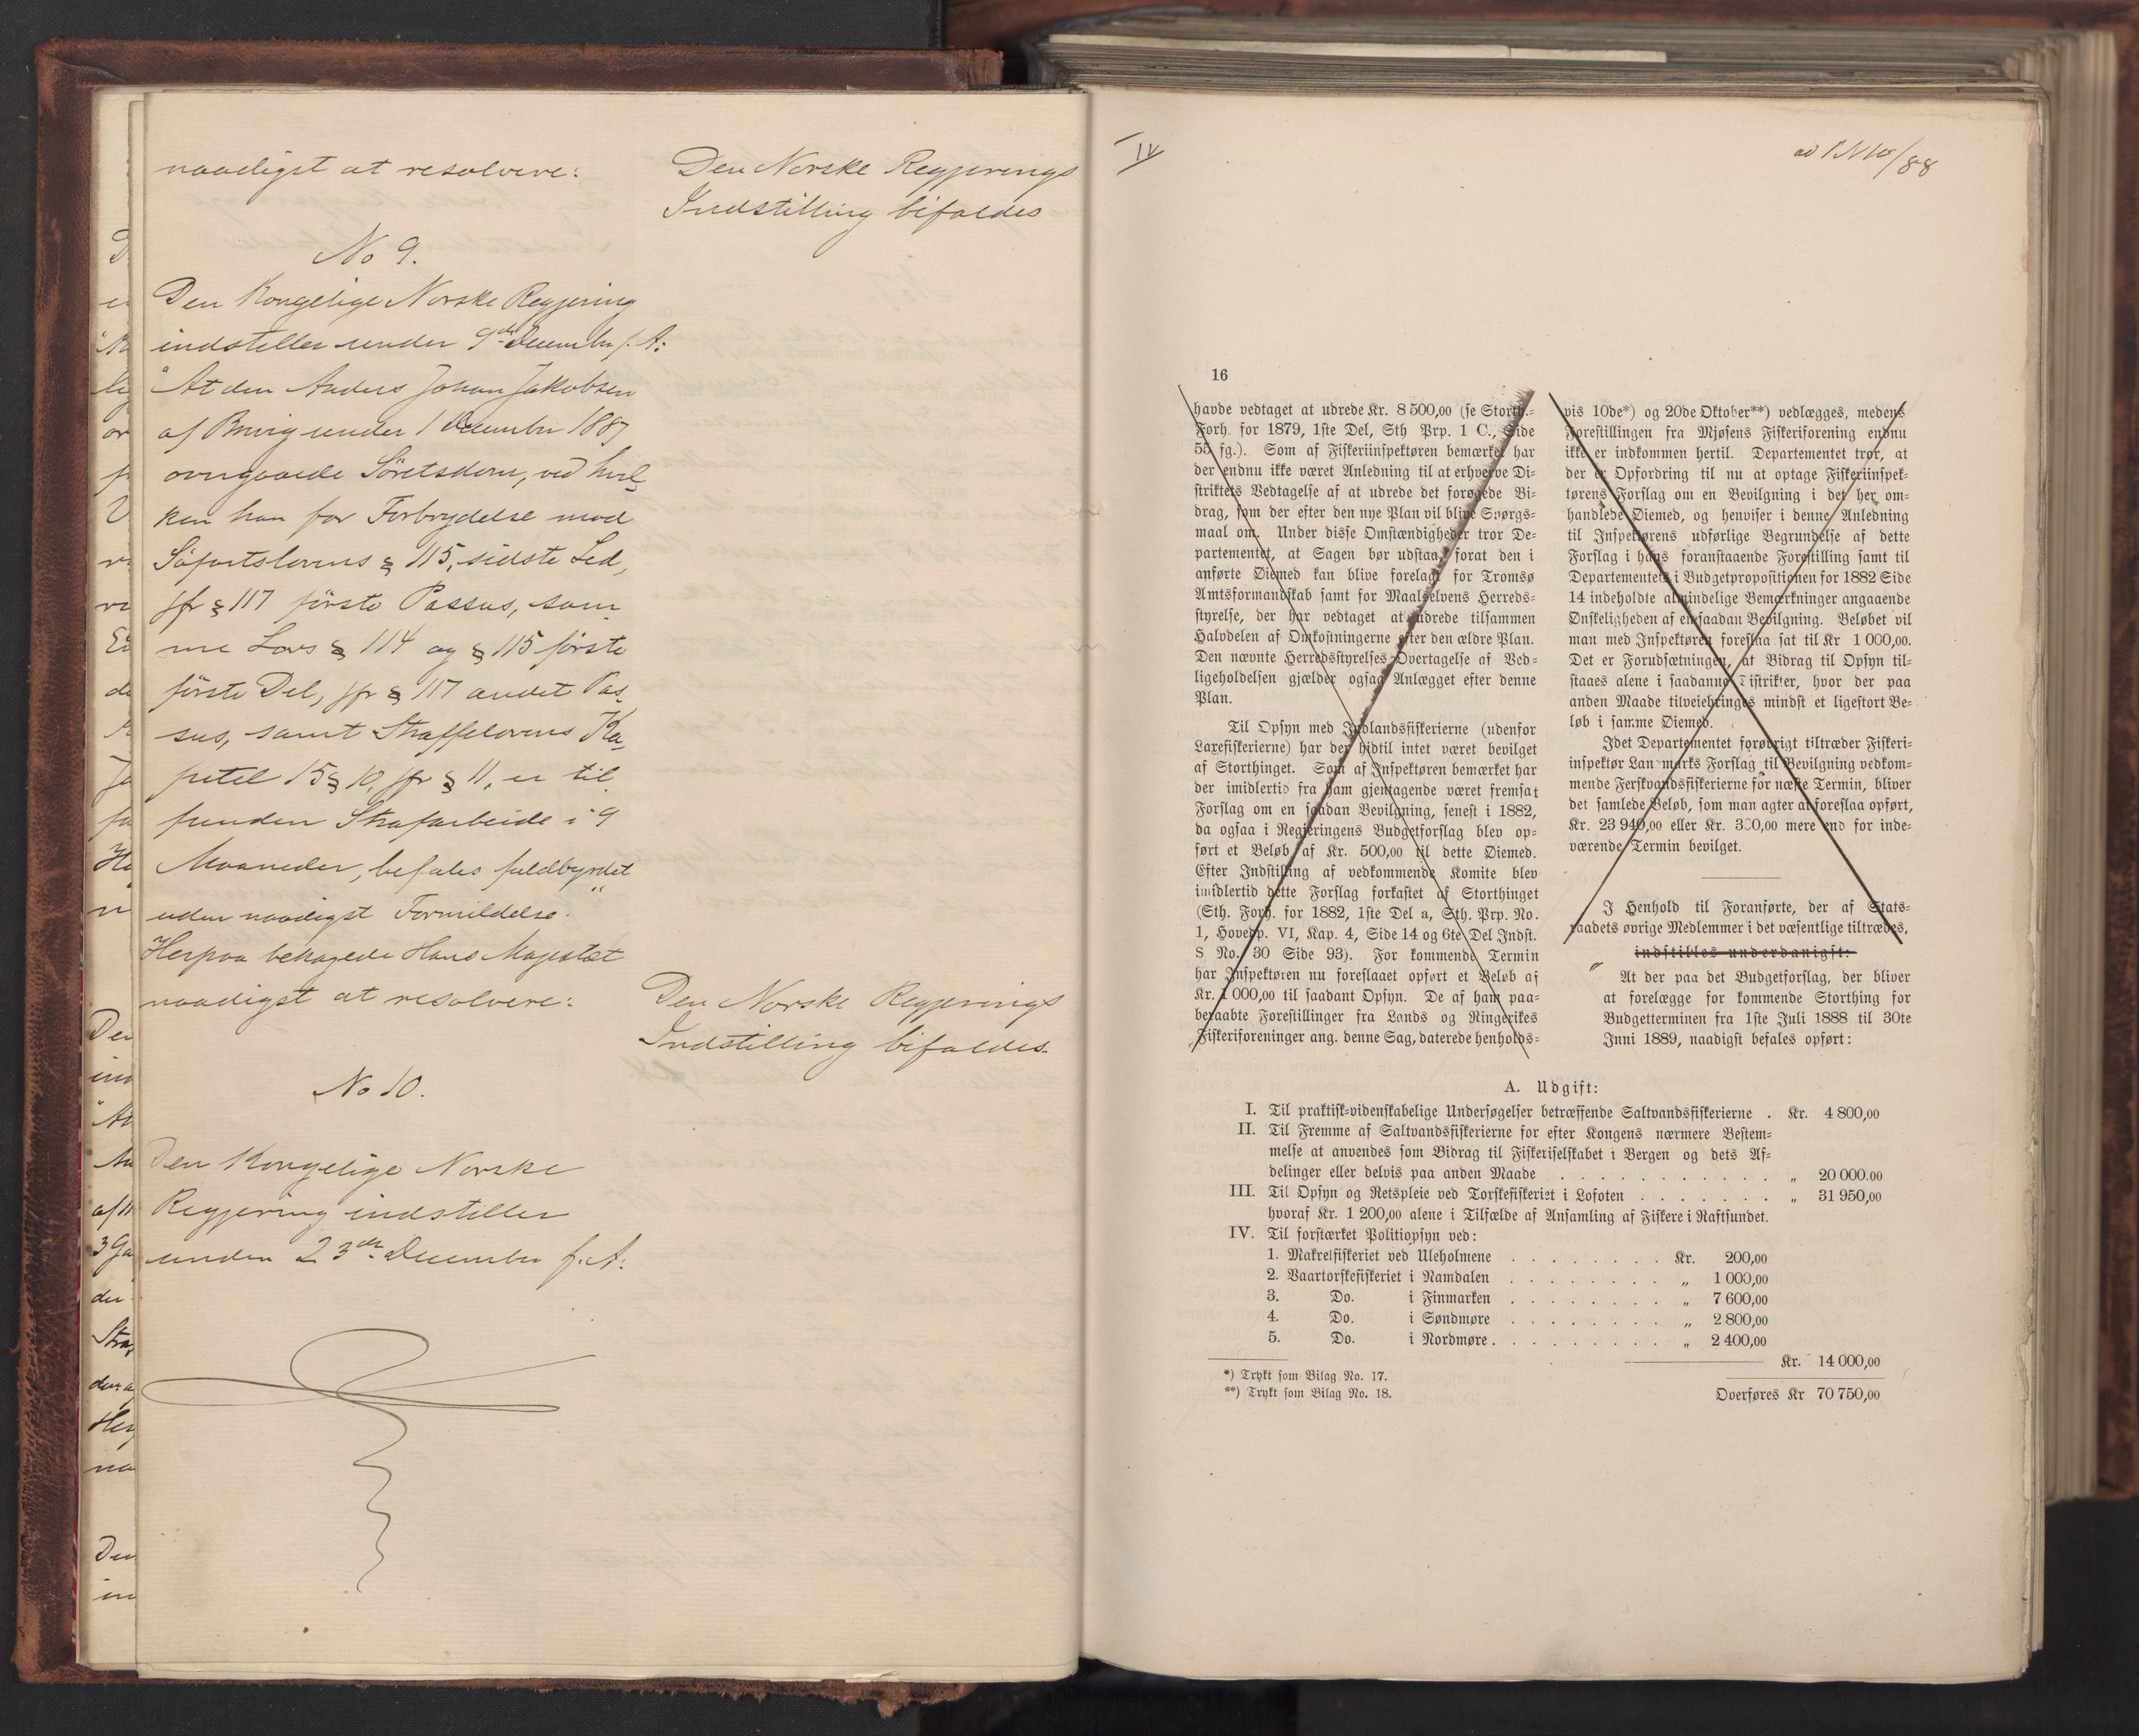 naadigst at resolvere:
Den Norske Regjerings
Indstilling bifaldes
No 9.
Den Kongelige Norske Regjering
indstiller under 9de December f. A:
"At den Anders Johan Jakobsen
af Brevig under 1 December 1887
overgaaede Söretsdom, ved hvil-
ken han for Forbrydelse mod
Söfartslovens § 115, sidste Led,
jfr § 117 förste Passus, sam-
me Lovs § 114 og § 115 förste
förste Del, jfr § 117 andet Pas-
sus, samt Straffelovens Ka-
pitel 15 § 10, jfr § 11, er til-
funden Strafarbeide i 9
Maaneder, befales fuldbyrdet
uden naadigst Formildelse."
Herpaa behagede Hans Majestæt
naadigst at resolvere:
Den Norske Regjerings
Indstilling bifaldes.
No 10.
Den Kongelige Norske
Regjering indstiller
under 23de December f. A:
IV
16
havde vedtaget at udrede Kr. 8 500,00 (se Storth.-
Forh. for 1879, 1ste Del, Sth Prp. 1 C., Side
55 fg.). Som af Fiskeriinspektøren bemærket har
der endnu ikke været Anledning til at erhverve Di-
striktets Vedtagelse af at udrede det forøgede Bi-
drag, som der efter den nye Plan vil blive Spørgs-
maal om. Under disse Omstændigheder tror De-
partementet, at Sagen bør udstaa, forat den i
anførte Øiemed kan blive forelagt for Tromsø
Amtsformandskab samt for Maalselvens Herreds-
styrelse, der har vedtaget at udrede tilsammen
Halvdelen af Omkostningerne efter den ældre Plan.
Den nævnte Herredsstyrelses Overtagelse af Ved-
ligeholdelsen gjælder ogsaa Anlægget efter denne
Plan.
Til Opsyn med Indlandsfiskerierne (udenfor
Laxefiskerierne) har der hidtil intet været bevilget
af Storthinget. Som af Inspektøren bemærket har
der imidlertid fra ham gjentagende været fremsat
Forslag om en saadan Bevilgning, senest i 1882,
da ogsaa i Regjeringens Budgetforslag blev op-
ført et Beløb af Kr. 500,00 til dette Øiemed.
Efter Indstilling af vedkommende Komite blev
imidlertid dette Forslag forkastet af Storthinget
(Sth. Forh. for 1882, 1ste Del a, Sth. Prp. No.
1, Hovedp. VI, Kap. 4, Side 14 og 6te Del Indst.
S. No. 30 Side 93). For kommende Termin
har Inspektøren nu foreslaaet opført et Beløb af
Kr. 1 000,00 til saadant Opsyn. De af ham paa-
beraabte Forestillinger fra Lands og Ringerikes
Fiskeriforeninger ang. denne Sag, daterede henholds-
ad 1 N 10/88
vis 10de*) og 20de Oktober**) vedlægges, medens
Forestillingen fra Mjøsens Fiskeriforening endnu
ikke er indkommen hertil. Departementet tror, at
der er Opfordring til nu at optage Fiskeriinspek-
tørens Forslag om en Bevilgning i det her om-
handlede Øiemed, og henviser i denne Anledning
til Inspektørens udførlige Begrundelse af dette
Forslag i hans foranstaaende Forestilling samt til
Departementets i Budgetpropositionen for 1882 Side
14 indeholdte almindelige Bemærkninger angaaende
Ønskeligheden af en saadan Bevilgning. Beløbet vil
man med Inspektøren foreslaa sat til Kr 1 000,00.
Det er Forudsætningen, at Bidrag til Opsyn til-
staaes alene i saadanne Distrikter, hvor der paa
anden Maade tilveiebringes mindst et ligestort Be-
løb i samme Øiemed.
Idet Departementet forøvrigt tiltræder Fiskeri-
inspektør Landmarks Forslag til Bevilgning vedkom-
mende Ferskvandsfiskerierne for næste Termin, bliver
det samlede Beløb, som man agter at foreslaa opført,
Kr. 23 940,00 eller Kr. 300,00 mere end for inde-
værende Termin bevilget.
I Henhold til Foranførte, der af Stats-
raadets øvrige Medlemmer i det væsentlige tiltrædes,
indstilles underdanigst:
" At der paa det Budgetforslag, der bliver
at forelægge for kommende Storthing for
Budgetterminen fra 1ste Juli 1888 til 30te
Juni 1889, naadigst befales opført:
A. Udgift:
I. Til praktisk-videnskabelige Undersøgelser betræffende Saltvandsfiskerierne . Kr. 4 800,00
II. Til Fremme af Saltvandsfiskerierne for efter Kongens nærmere Bestem-
melse at anvendes som Bidrag til Fiskeriselskabet i Bergen og dets Af-
delinger eller delvis paa anden Maade . . . . . . . . . . . „ 20 000.00
III. Til Opsyn og Retspleie ved Torskefiskeriet i Lofoten . . . . . . . „ 31 950,00
hvoraf Kr. 1 200,00 alene i Tilfælde af Ansamling af Fiskere i Raftsundet.
IV. Til forstærket Politiopsyn ved:
1. Makrelfiskeriet ved Uleholmene . . . . . . . . Kr. 200,00
2. Vaartorskefiskeriet i Namdalen . . . . . . . . „ 1 000,00
3. Do. i Finmarken . . . . . . . . „ 7 600,00
4. Do. i Søndmøre . . . . . . . . „ 2 800,00
5. Do. i Nordmøre . . . . . . . . . „ 2 400,00
Kr. 14 000,00
*) Trykt som Bilag No. 17.
**) Trykt som Bilag No. 18.
Overføres Kr 70 750,00